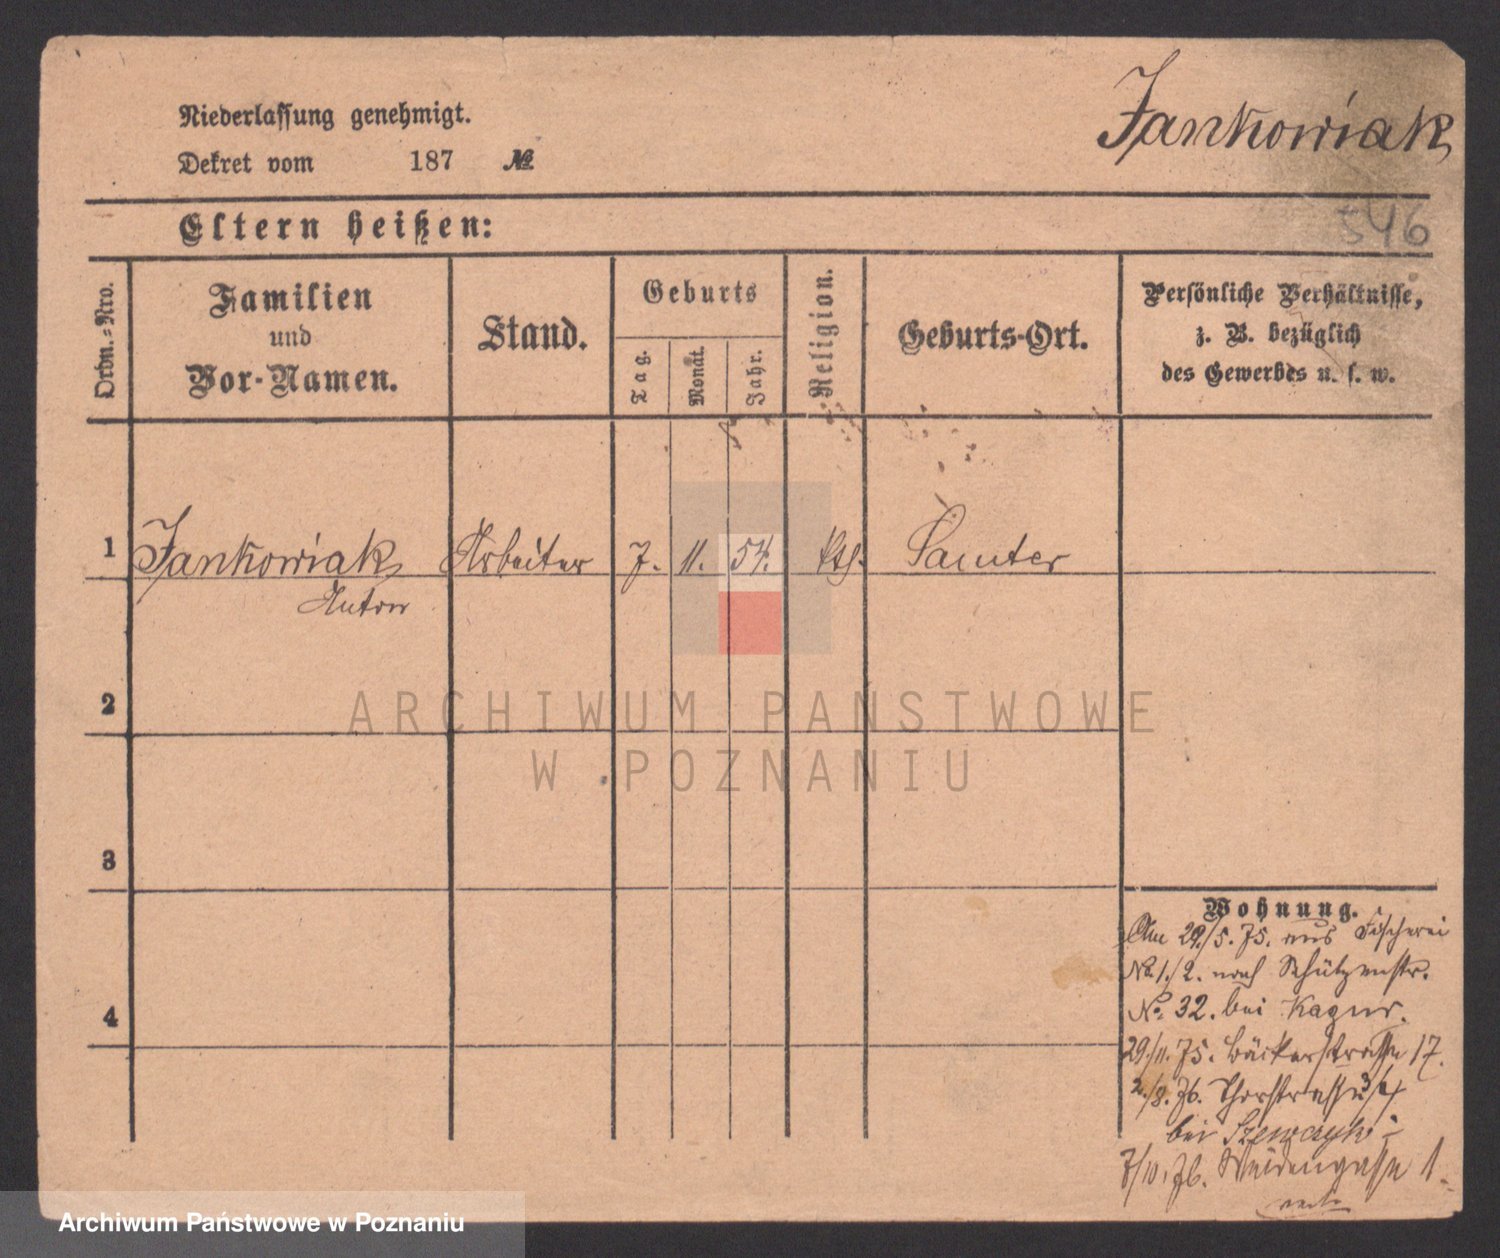 Jankowiak
Niederlassung genehmigt.
Dekret vom 187 №
546
Eltern heißen:
Ordn.-Nro.
Familien
und
Vor-Namen.
Stand.
Geburts
Tag.
Monat.
Jahr.
Religion.
Geburts-Ort.
Persönliche Verhältnisse,
z. B. bezüglich
des Gewerbes u. s. w.
1 Jankowiak Arbeiter 7. 11. 54. kth. Samter
Anton
2
3
4
Wohnung.
Am 29./5. 75. aus Fischerei
No. 1./2. nach Schützenstr.
No. 32. bei Kazur.
29./11. 75. Bäckerstrasse 17.
2./8. 76. Thorstrasse
bei Szewczyk
7/10. 76. Weidengasse 1.
ARCHIWUM PAŃSTWOWE
W POZNANIU
Archiwum Państwowe w Poznaniu